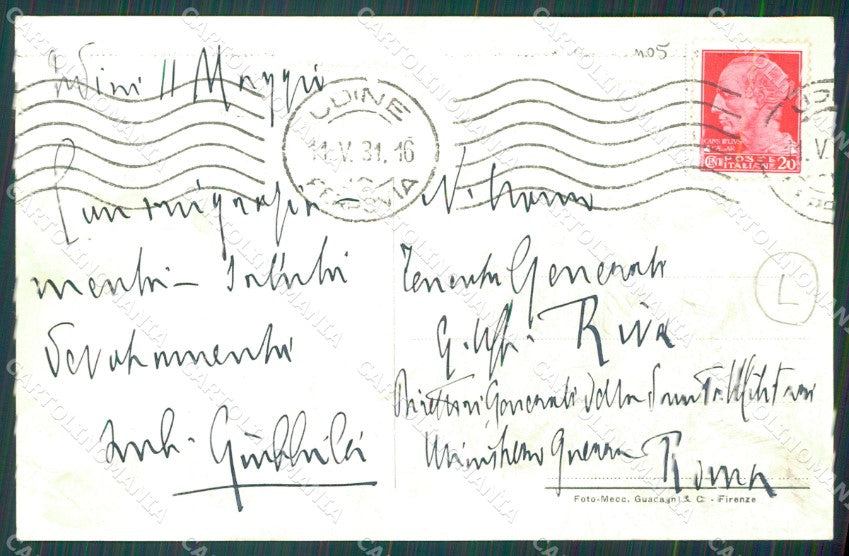 Udini 11 Maggio
UDINE
11.V.31.16
FERROVIA
N05
POSTE
ITALIANE
20
Con ringrazia-
menti - saluti
Devotamente
Giubbilei
Tenente Generale
G. Uff. Riva
Direttore Generale della Sanità Militare
Ministero Guerra
Roma
L
Foto-Mecc. Guacagni & C. - Firenze
CARTOLINOMANIA